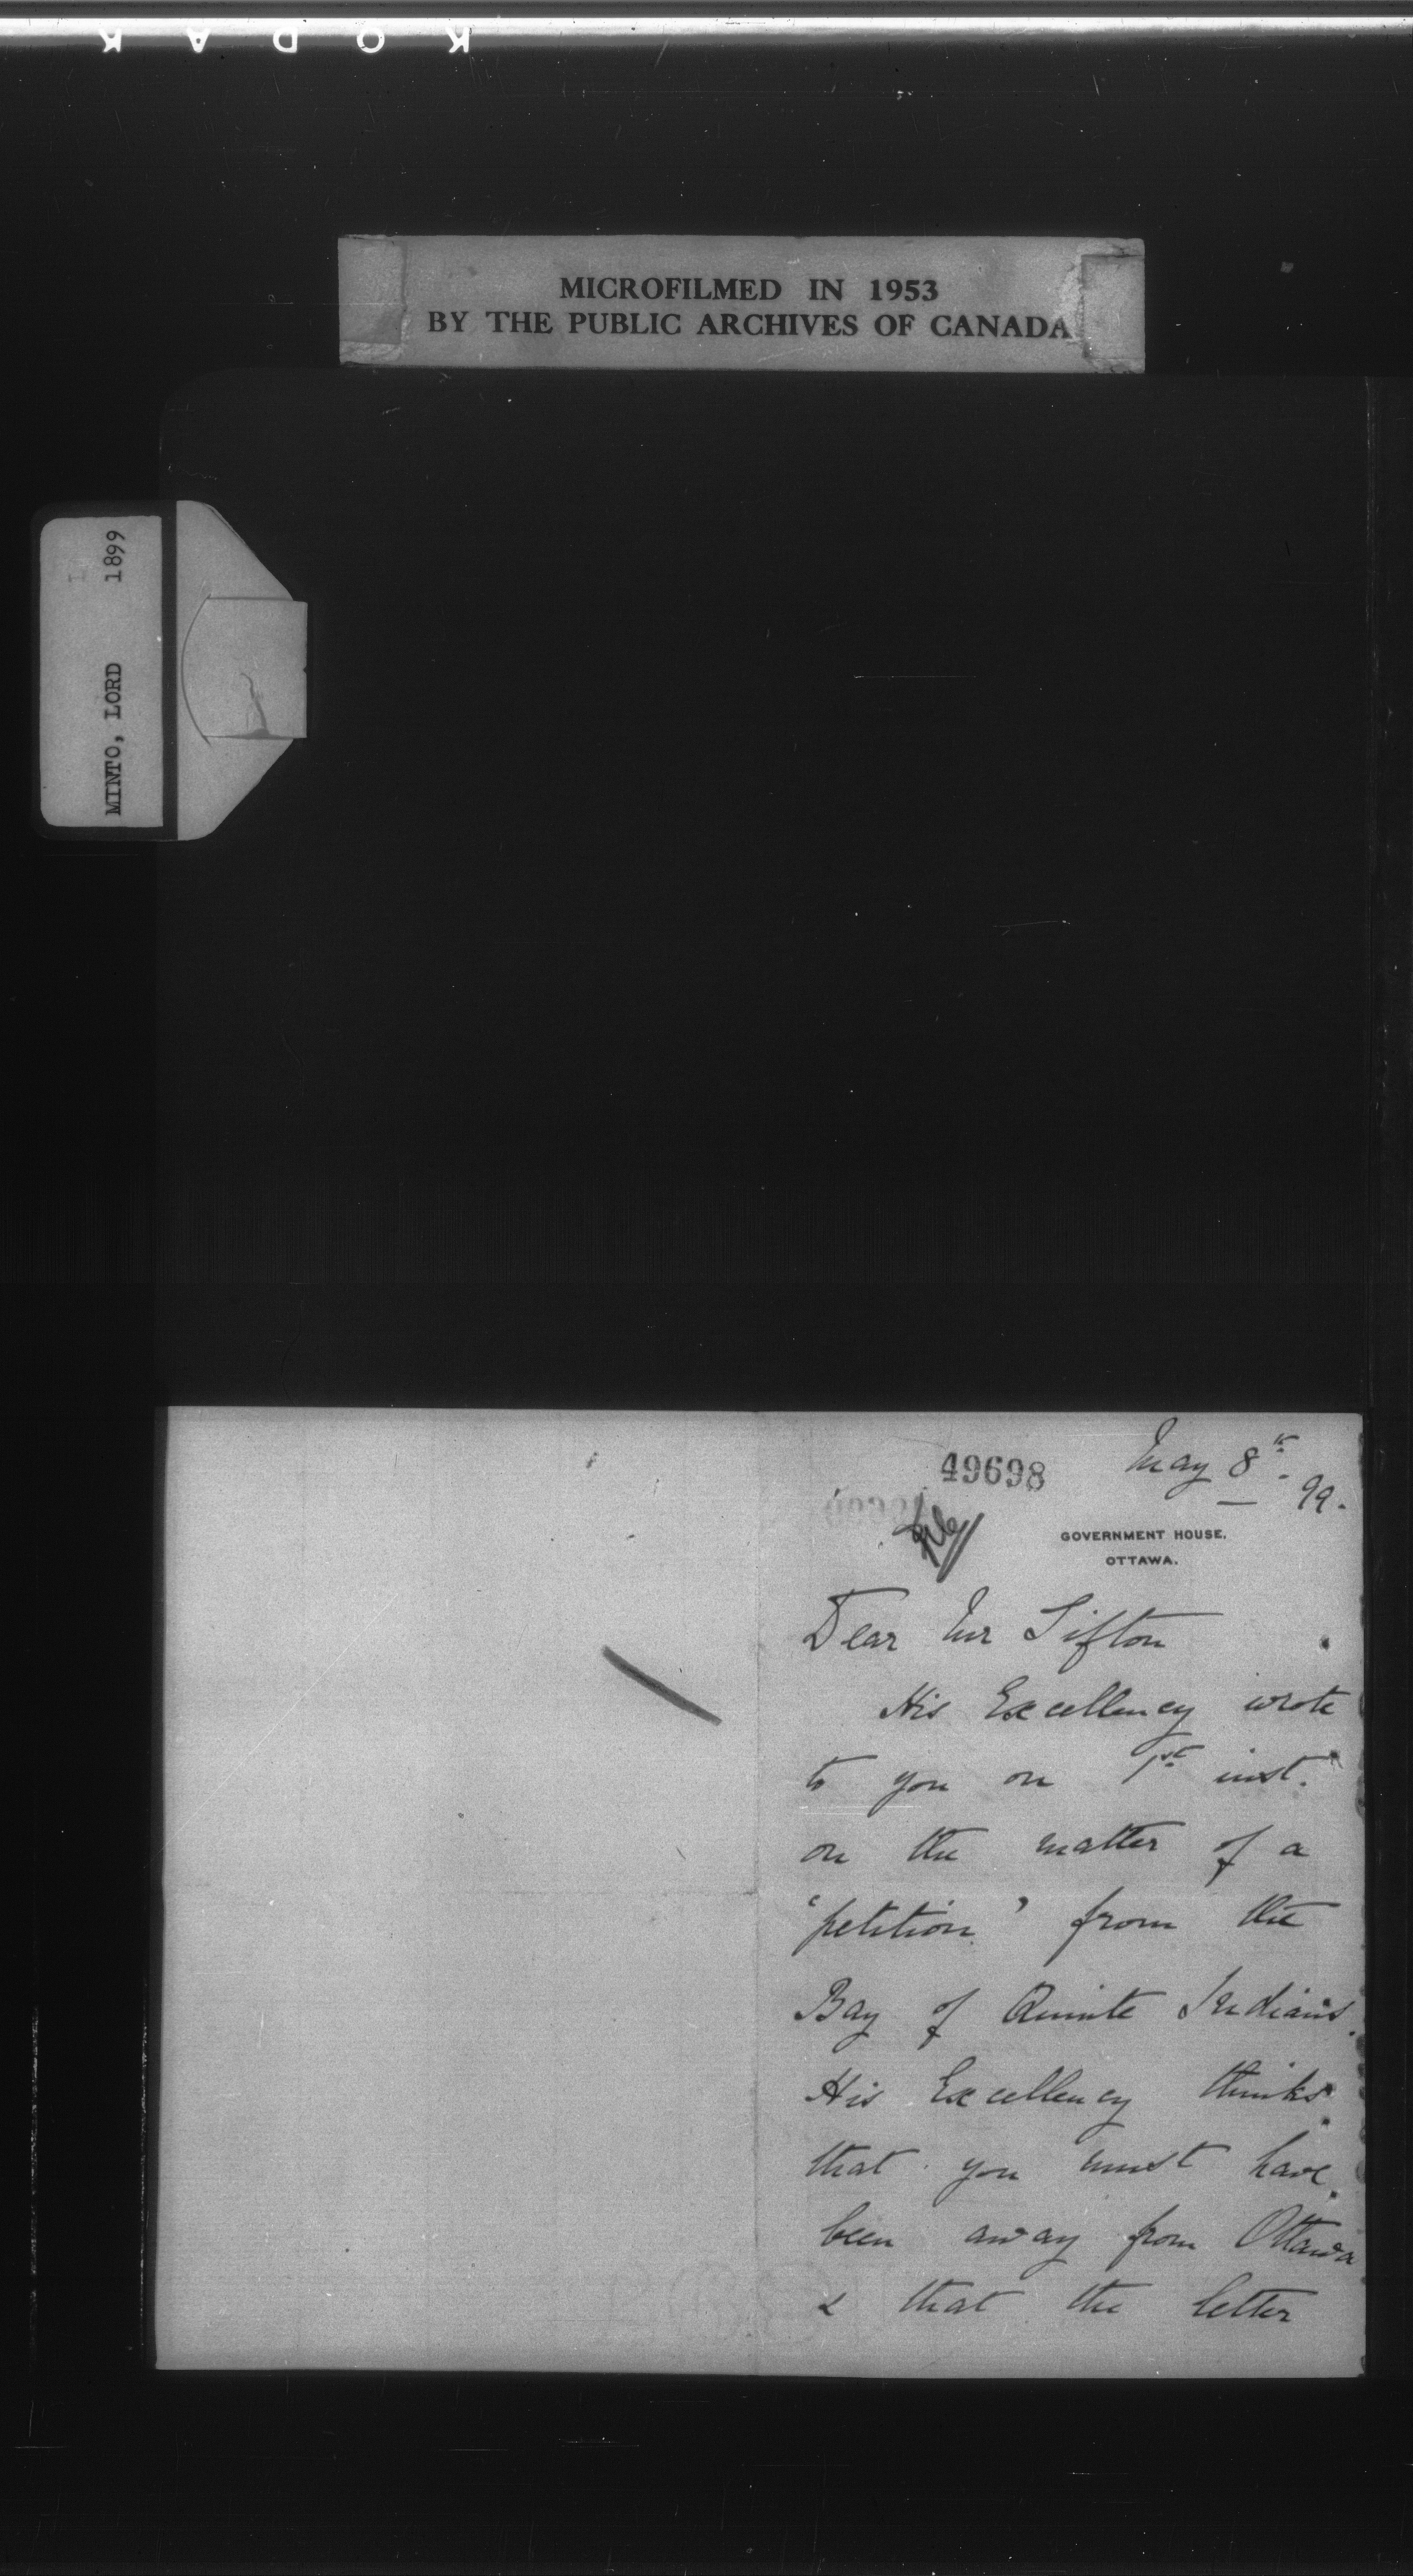 KODAK
MICROFILMED IN 1953
BY THE PUBLIC ARCHIVES OF CANADA
MINTO, LORD 1899
49698
May 8th 99.
file
GOVERNMENT HOUSE.
OTTAWA.
Dear Mr Sifton
His Excellency wrote
to you on 1st inst.
on the matter of a
'petition' from the
Bay of Quinte Indians.
His Excellency thinks
that you must have
been away from Ottawa
& that the letter